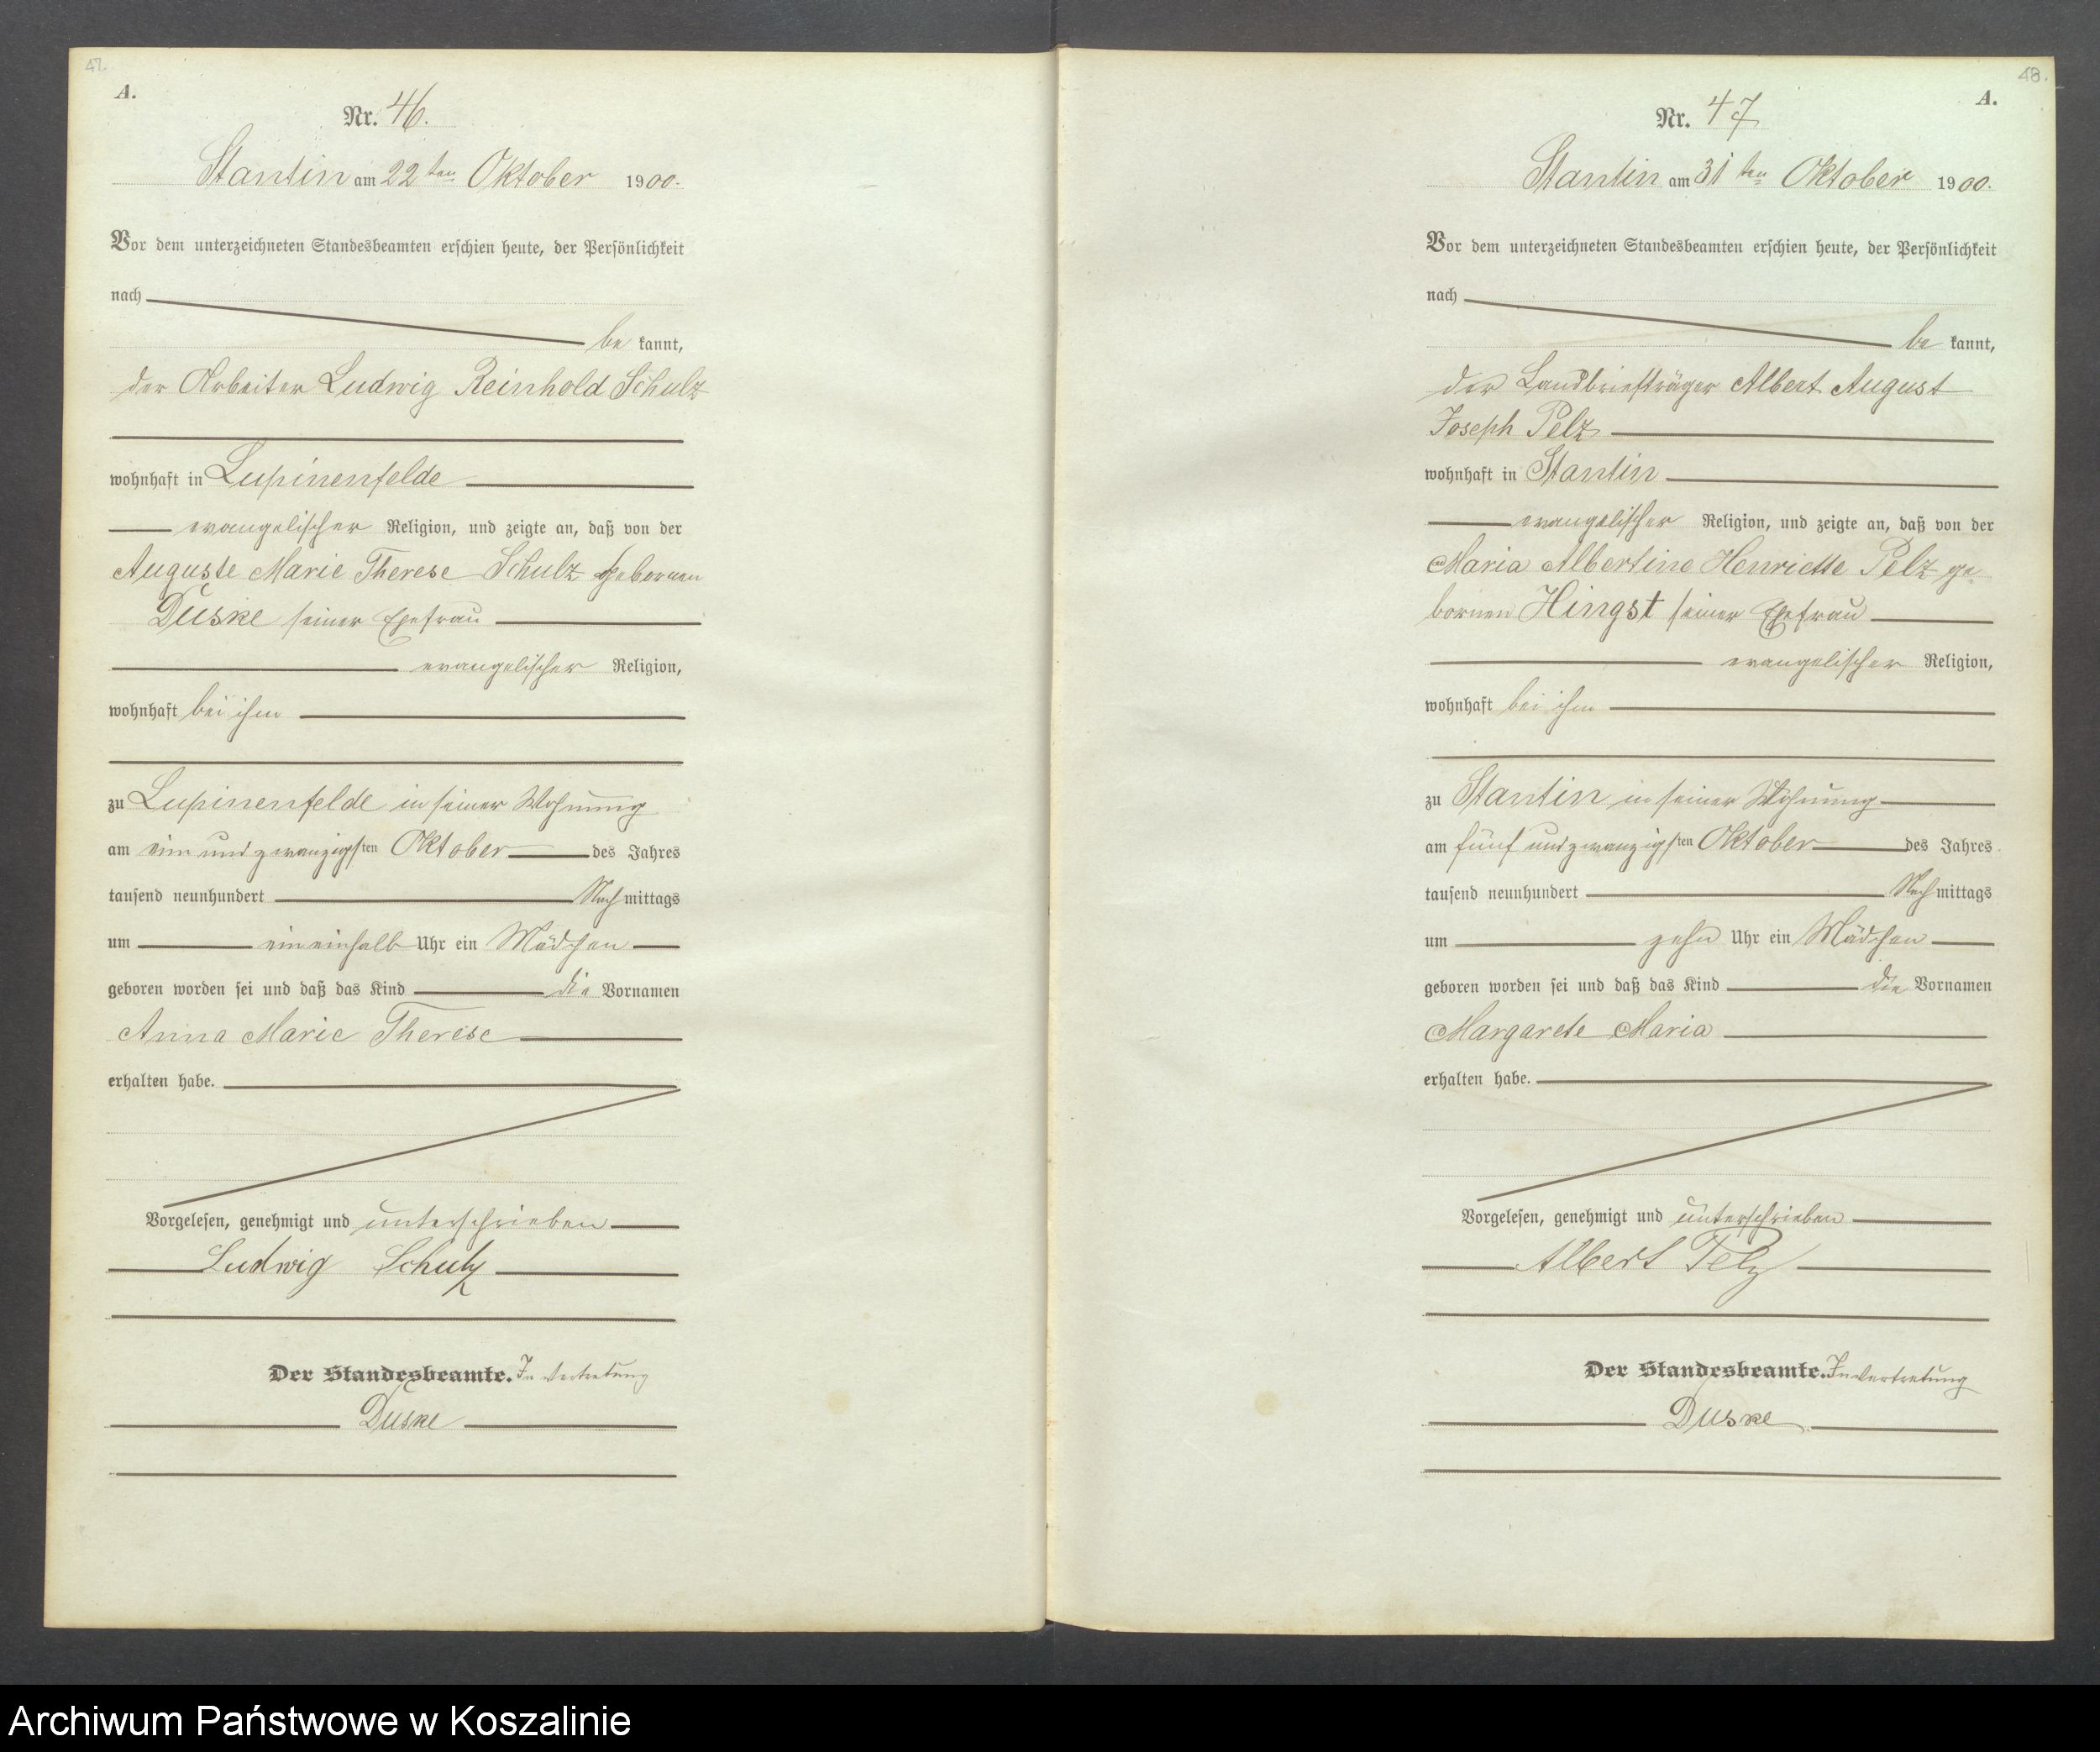 47.
A.
Nr. 46.
Stantin am 22ten Oktober 1900.
Vor dem unterzeichneten Standesbeamten erschien heute, der Persönlichkeit
nach
be kannt,
der Arbeiter Ludwig Reinhold Schulz
wohnhaft in Lupinenfelde
evangelischer Religion, und zeigte an, daß von der
Auguste Marie Therese Schulz gebornen
Duske seiner Ehefrau
evangelischer Religion,
wohnhaft bei ihm
zu Lupinenfelde in seiner Wohnung
am ein und zwanzigsten Oktober des Jahres
tausend neunhundert Nachmittags
um ein einhalb Uhr ein Mädchen
geboren worden sei und daß das Kind die Vornamen
Anna Marie Therese
erhalten habe.
Vorgelesen, genehmigt und unterschrieben
Ludwig Schulz
Der Standesbeamte. In Vertretung
Duske
48.
A.
Nr. 47
Stantin am 31ten Oktober 1900.
Vor dem unterzeichneten Standesbeamten erschien heute, der Persönlichkeit
nach
be kannt,
der Landbriefträger Albert August
Joseph Pelz
wohnhaft in Stantin
evangelischer Religion, und zeigte an, daß von der
Maria Albertine Henriette Pelz ge
bornen Hingst seiner Ehefrau
evangelischer Religion,
wohnhaft bei ihm
zu Stantin in seiner Wohnung
am fünf und zwanzigsten Oktober des Jahres
tausend neunhundert Nachmittags
um zehn Uhr ein Mädchen
geboren worden sei und daß das Kind die Vornamen
Margarete Maria
erhalten habe.
Vorgelesen, genehmigt und unterschrieben
Albert Pelz
Der Standesbeamte. In Vertretung
Duske
Archiwum Państwowe w Koszalinie